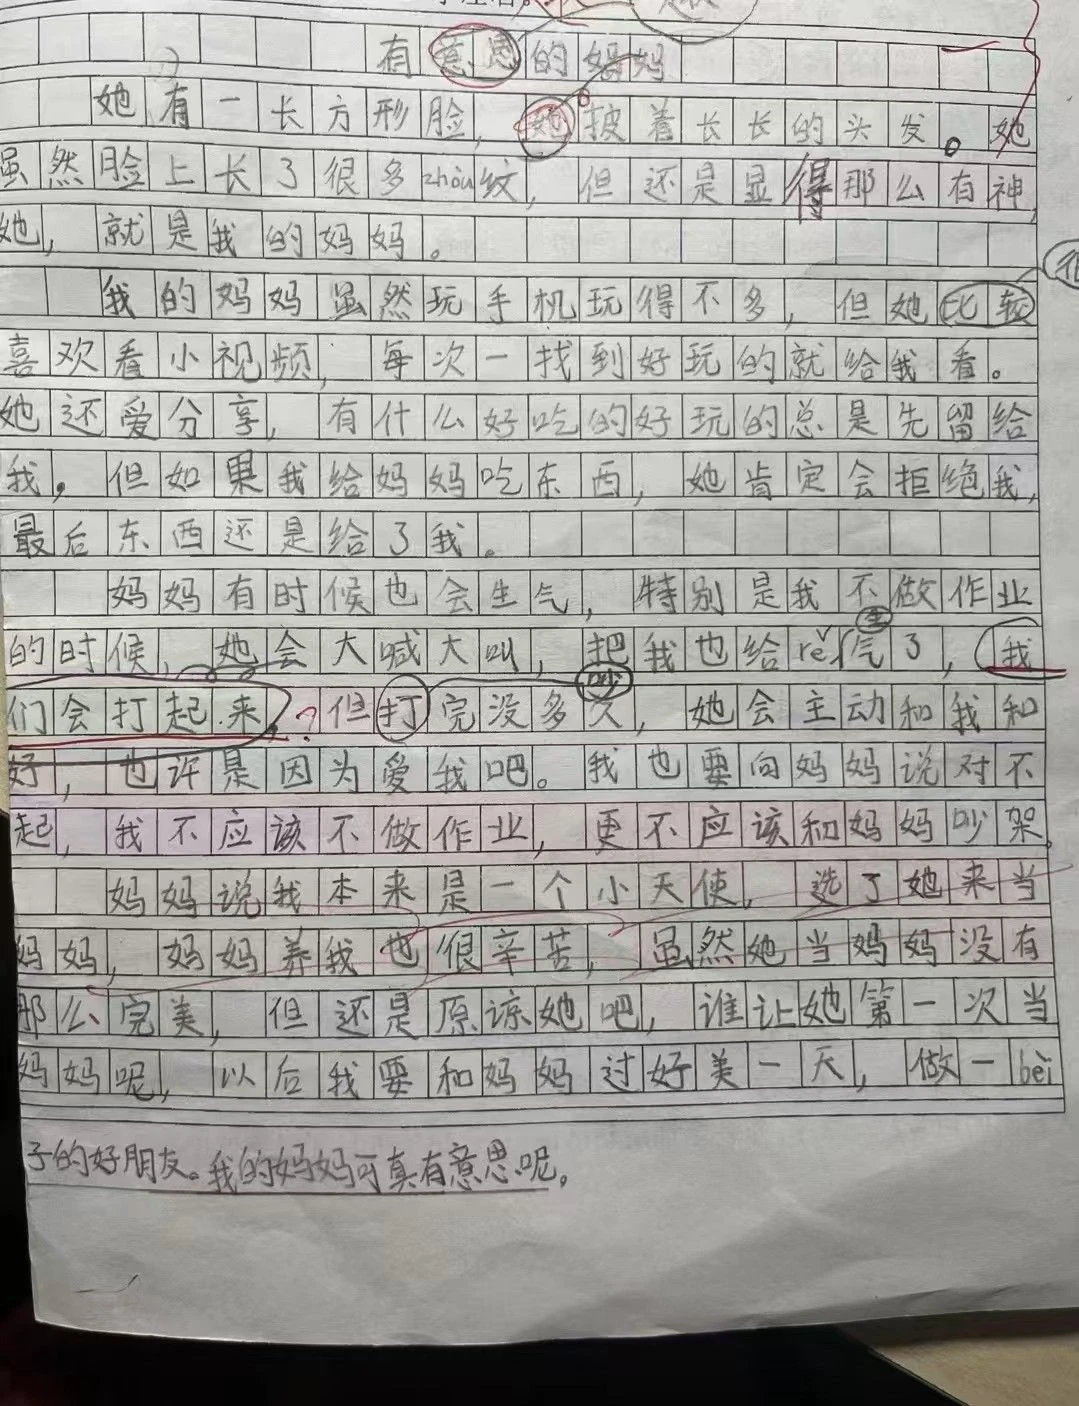 有意思的妈妈
她有一长方形脸，她披着长长的头发。她
虽然脸上长了很多zhòu纹，但还是显得那么有神，
她，就是我的妈妈。
我的妈妈虽然玩手机玩得不多，但她比较
喜欢看小视频，每次一找到好玩的就给我看。
她还爱分享，有什么好吃的好玩的总是先留给
我。但如果我给妈妈吃东西，她肯定会拒绝我，
最后东西还是给了我。
妈妈有时候也会生气，特别是我不做作业
的时候，她会大喊大叫，把我也给rě生气了，我
们会打起来，？但打吵完没多久，她会主动和我和
好，也许是因为爱我吧。我也要向妈妈说对不
起，我不应该不做作业，更不应该和妈妈吵架。
妈妈说我本来是一个小天使，选了她来当
妈妈，妈妈养我也很辛苦，虽然她当妈妈没有
那么完美，但还是原谅她吧，谁让她第一次当
妈妈呢，以后我要和妈妈过好美一天，做一bèi
子的好朋友。我的妈妈可真有意思呢。